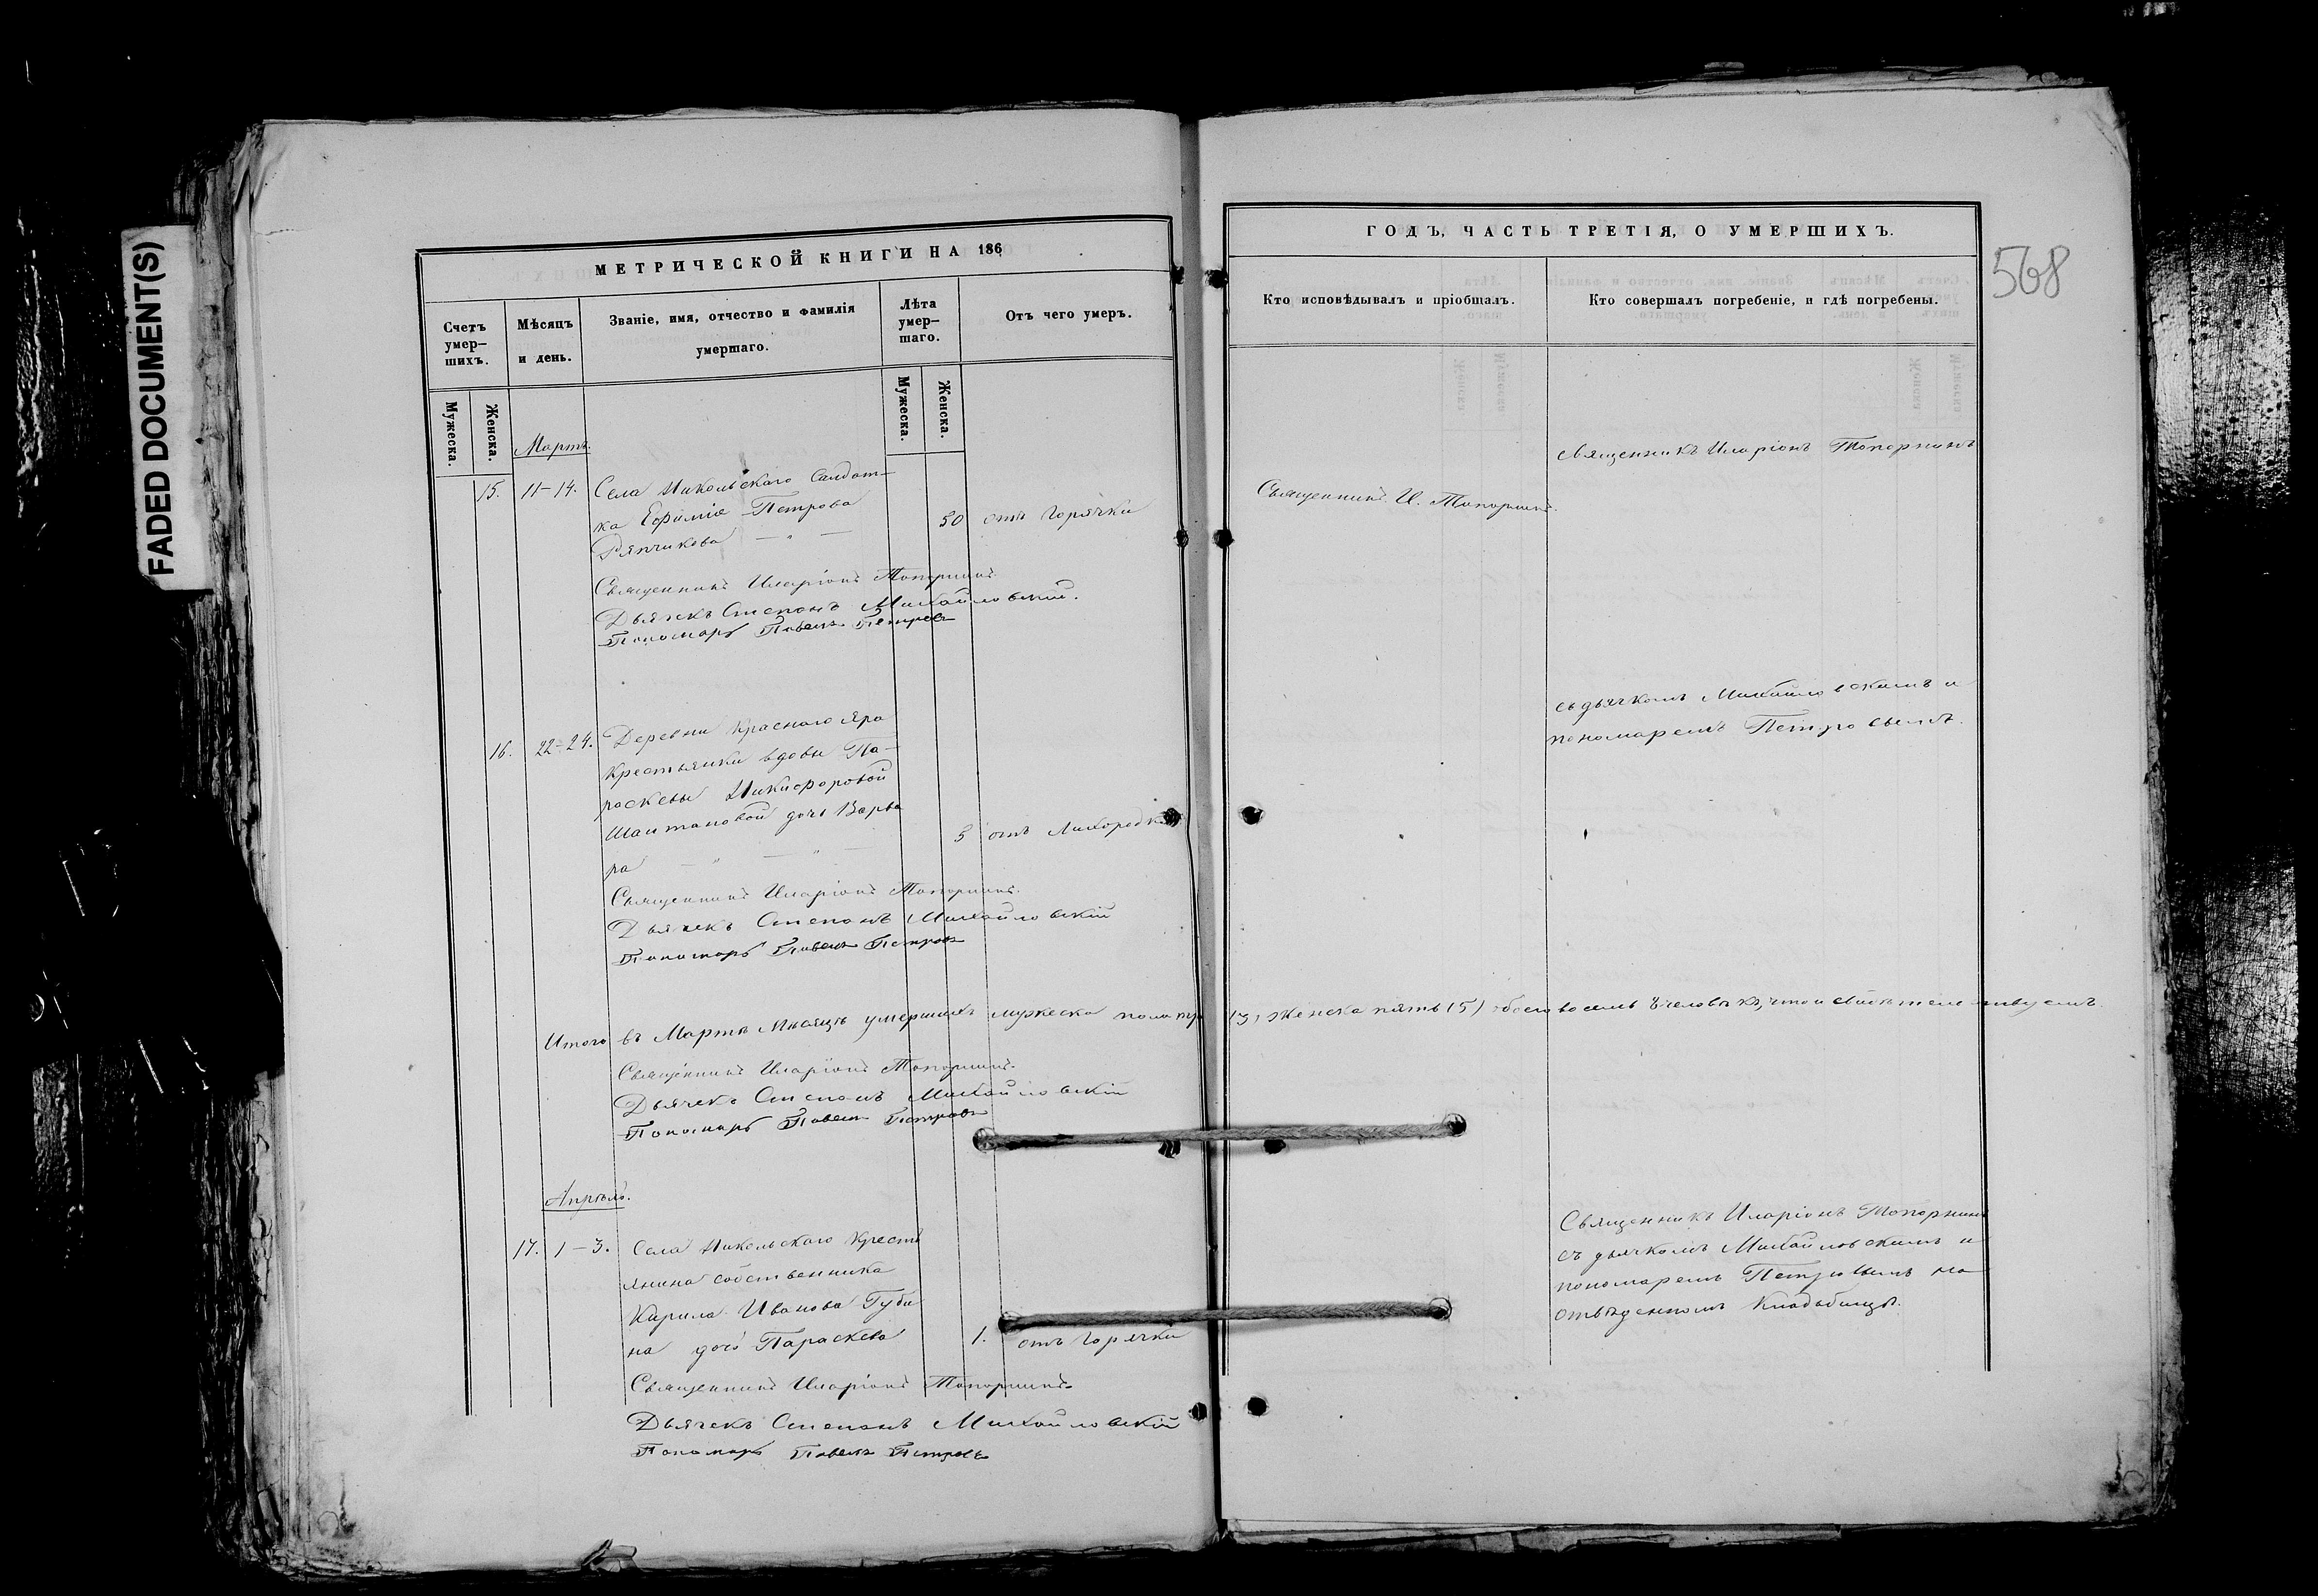 FADED DOCUMENT(S)
МЕТРИЧЕСКОЙ КНИГИ НА 186
Счетъ умер–шихъ.
Мѣсяцъ и день.
Званіе, имя, отчество и фамилія умершаго.
Лѣта умер–шаго.
Отъ чего умеръ.
Мужеска.
Женска.
Мужеска.
Женска.
Мартъ.
15. 11–14. Села Никольскаго Салдат–
ка Ефимія Петрова
Ряпчикова — „ — 50 отъ горячки
Священникъ Иларіонъ Топорнинъ.
Дьячекъ Степанъ Михайловскій.
Пономарь Павелъ Петровъ
16. 22–24. Деревни Краснаго Яра
крестьянки вдовы Па–
раскевы Никифоровой
Шаитановой дочь Варва
ра — „ — „ — 3 отъ лихорадки
Священникъ Иларіонъ Топорнинъ.
Дьячекъ Степанъ Михайловскій
Пономарь Павелъ Петровъ
Итого въ Мартѣ Мѣсяцѣ умершихъ мужеска пола три (3) женска пять (5) обоего восемь 8 человѣкъ, что и свидѣтельствуемъ.
Священникъ Иларіонъ Топорнинъ.
Дьячекъ Степанъ Михайловскій
Пономарь Павелъ Петровъ
Апрѣль.
17. 1–3. Села Никольскаго Кресть
янина собственника
Кирила Иванова Губи
на дочь Параскева 1. отъ горячки
Священникъ Иларіонъ Топорнинъ.
Дьячекъ Степанъ Михайловскій
Пономарь Павелъ Петровъ
ГОДЪ, ЧАСТЬ ТРЕТІЯ, О УМЕРШИХЪ.
568
Кто исповѣдывалъ и пріобщалъ.
Кто совершалъ погребеніе, и гдѣ погребены.
Священникъ Иларіонъ Топорнинъ
Священникъ И. Топорнинъ.
съ дьячкомъ Михайловскимъ и
пономаремъ Петровымъ.
Священникъ Иларіонъ Топорнинъ
съ дьячкомъ Михайловскимъ и
пономаремъ Петровымъ на
отведенномъ кладбищѣ.